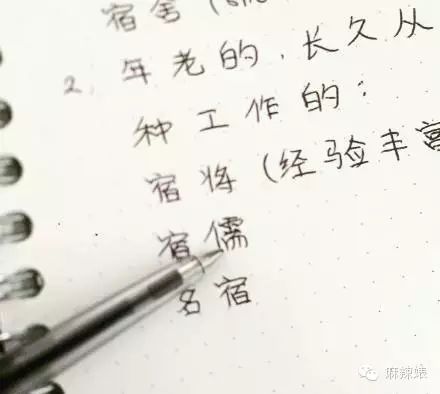 宿舍（
2. 年老的，长久从
种工作的：
宿将（经验丰富
宿儒
名宿
麻辣婊